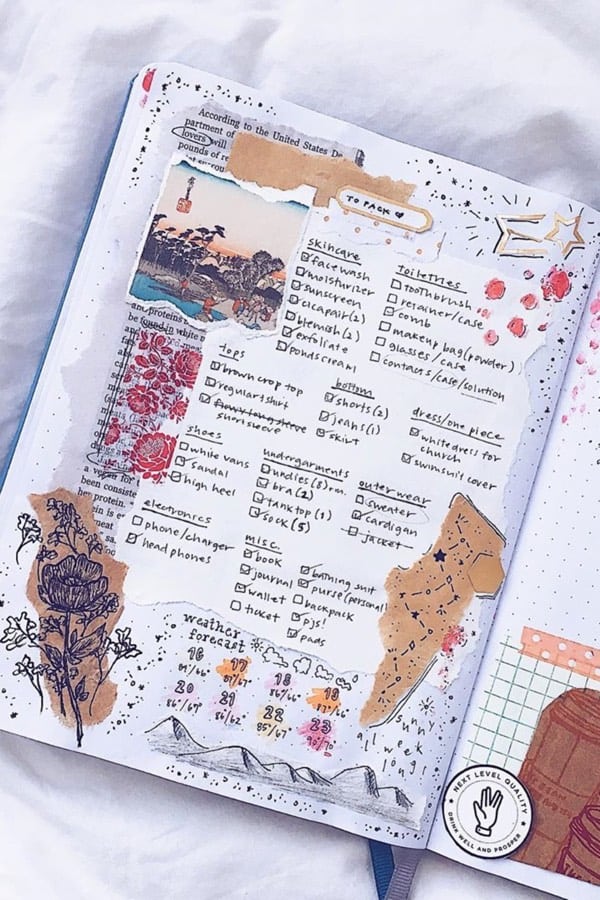 According to the United States De
partment of
lovers will
pounds of re
TO PACK
skincare
face wash
moisturizer
sunscreen
cicapair(2)
blemish(2)
exfoliate
ponds cream
Toiletries
toothbrush
retainer/case
comb
makeup bag(powder)
glasses/case
contacts/case/solution
Tops
brown crop top
regular tshirt
short sleeve
bottom
shorts(2)
jeans(1)
skirt
dress/one piece
white dress for
church
swimsuit cover
shoes
white vans
sandal
high heel
undergarments
undies(8)
bra(2)
tank top(1)
sock(5)
outerwear
sweater
cardigan
jacket
electronics
phone/charger
headphones
misc.
book
journal
wallet
ticket
bathing suit
purse(personal)
backpack
pjs!
pads
an proteins
be found in white
been consiste
her protein.
weather
forecast
16
17
18
19
87°/66°
20
86°/69°
21
86/62°
22
85/67
23
90°/70°
sunny
all week
long!
NEXT LEVEL QUALITY
DRINK WELL AND PROSPER